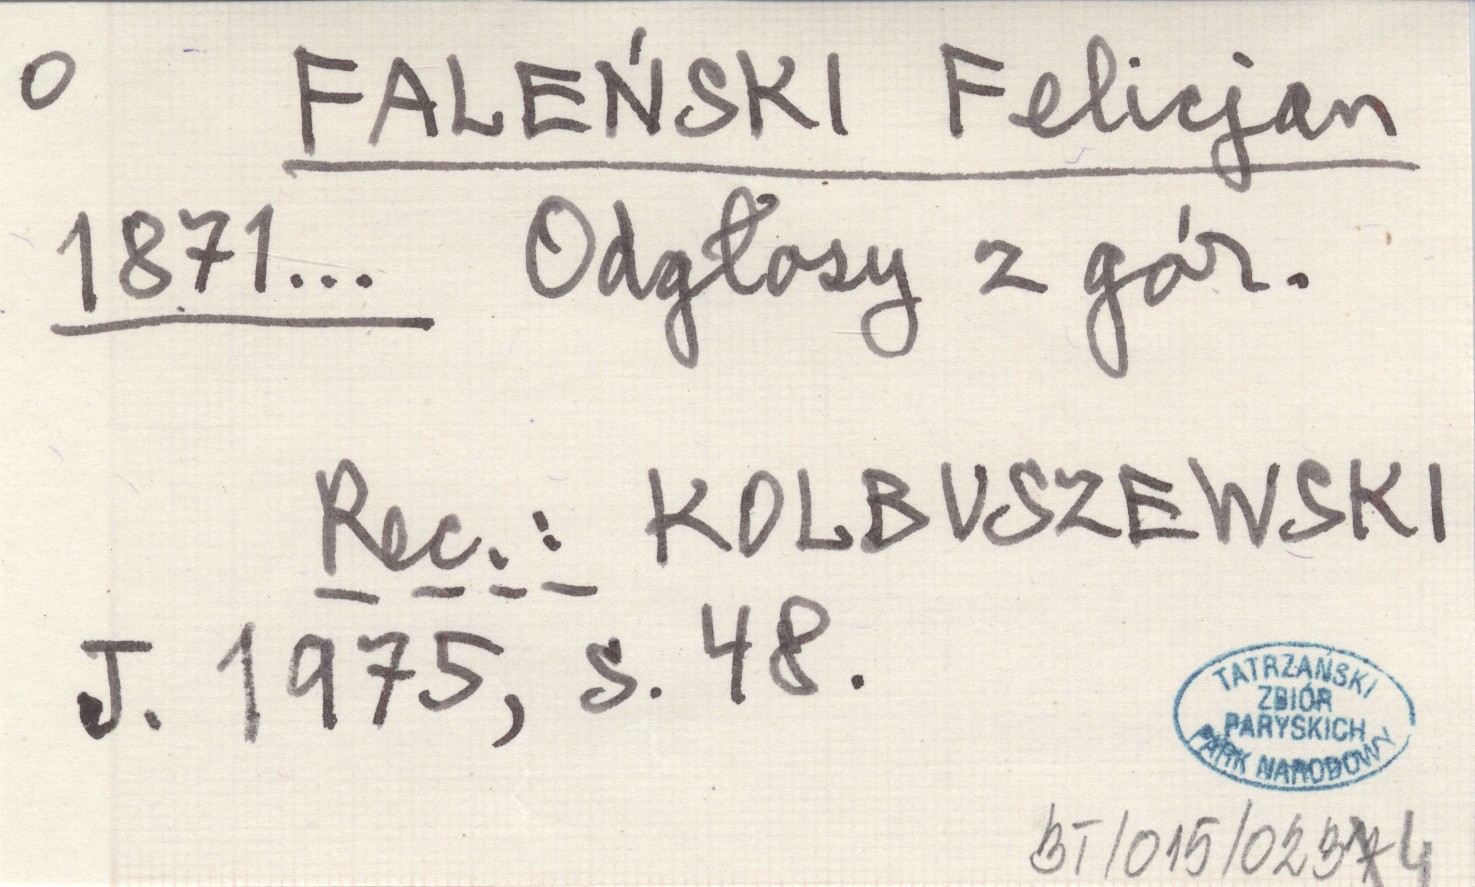 O FALEŃSKI Felicjan
1871... Odgłosy z gór.
Rec.: KOLBUSZEWSKI
J. 1975, s. 48.
TATRZAŃSKI
ZBIÓR
PARYSKICH
PARK NARODOWY